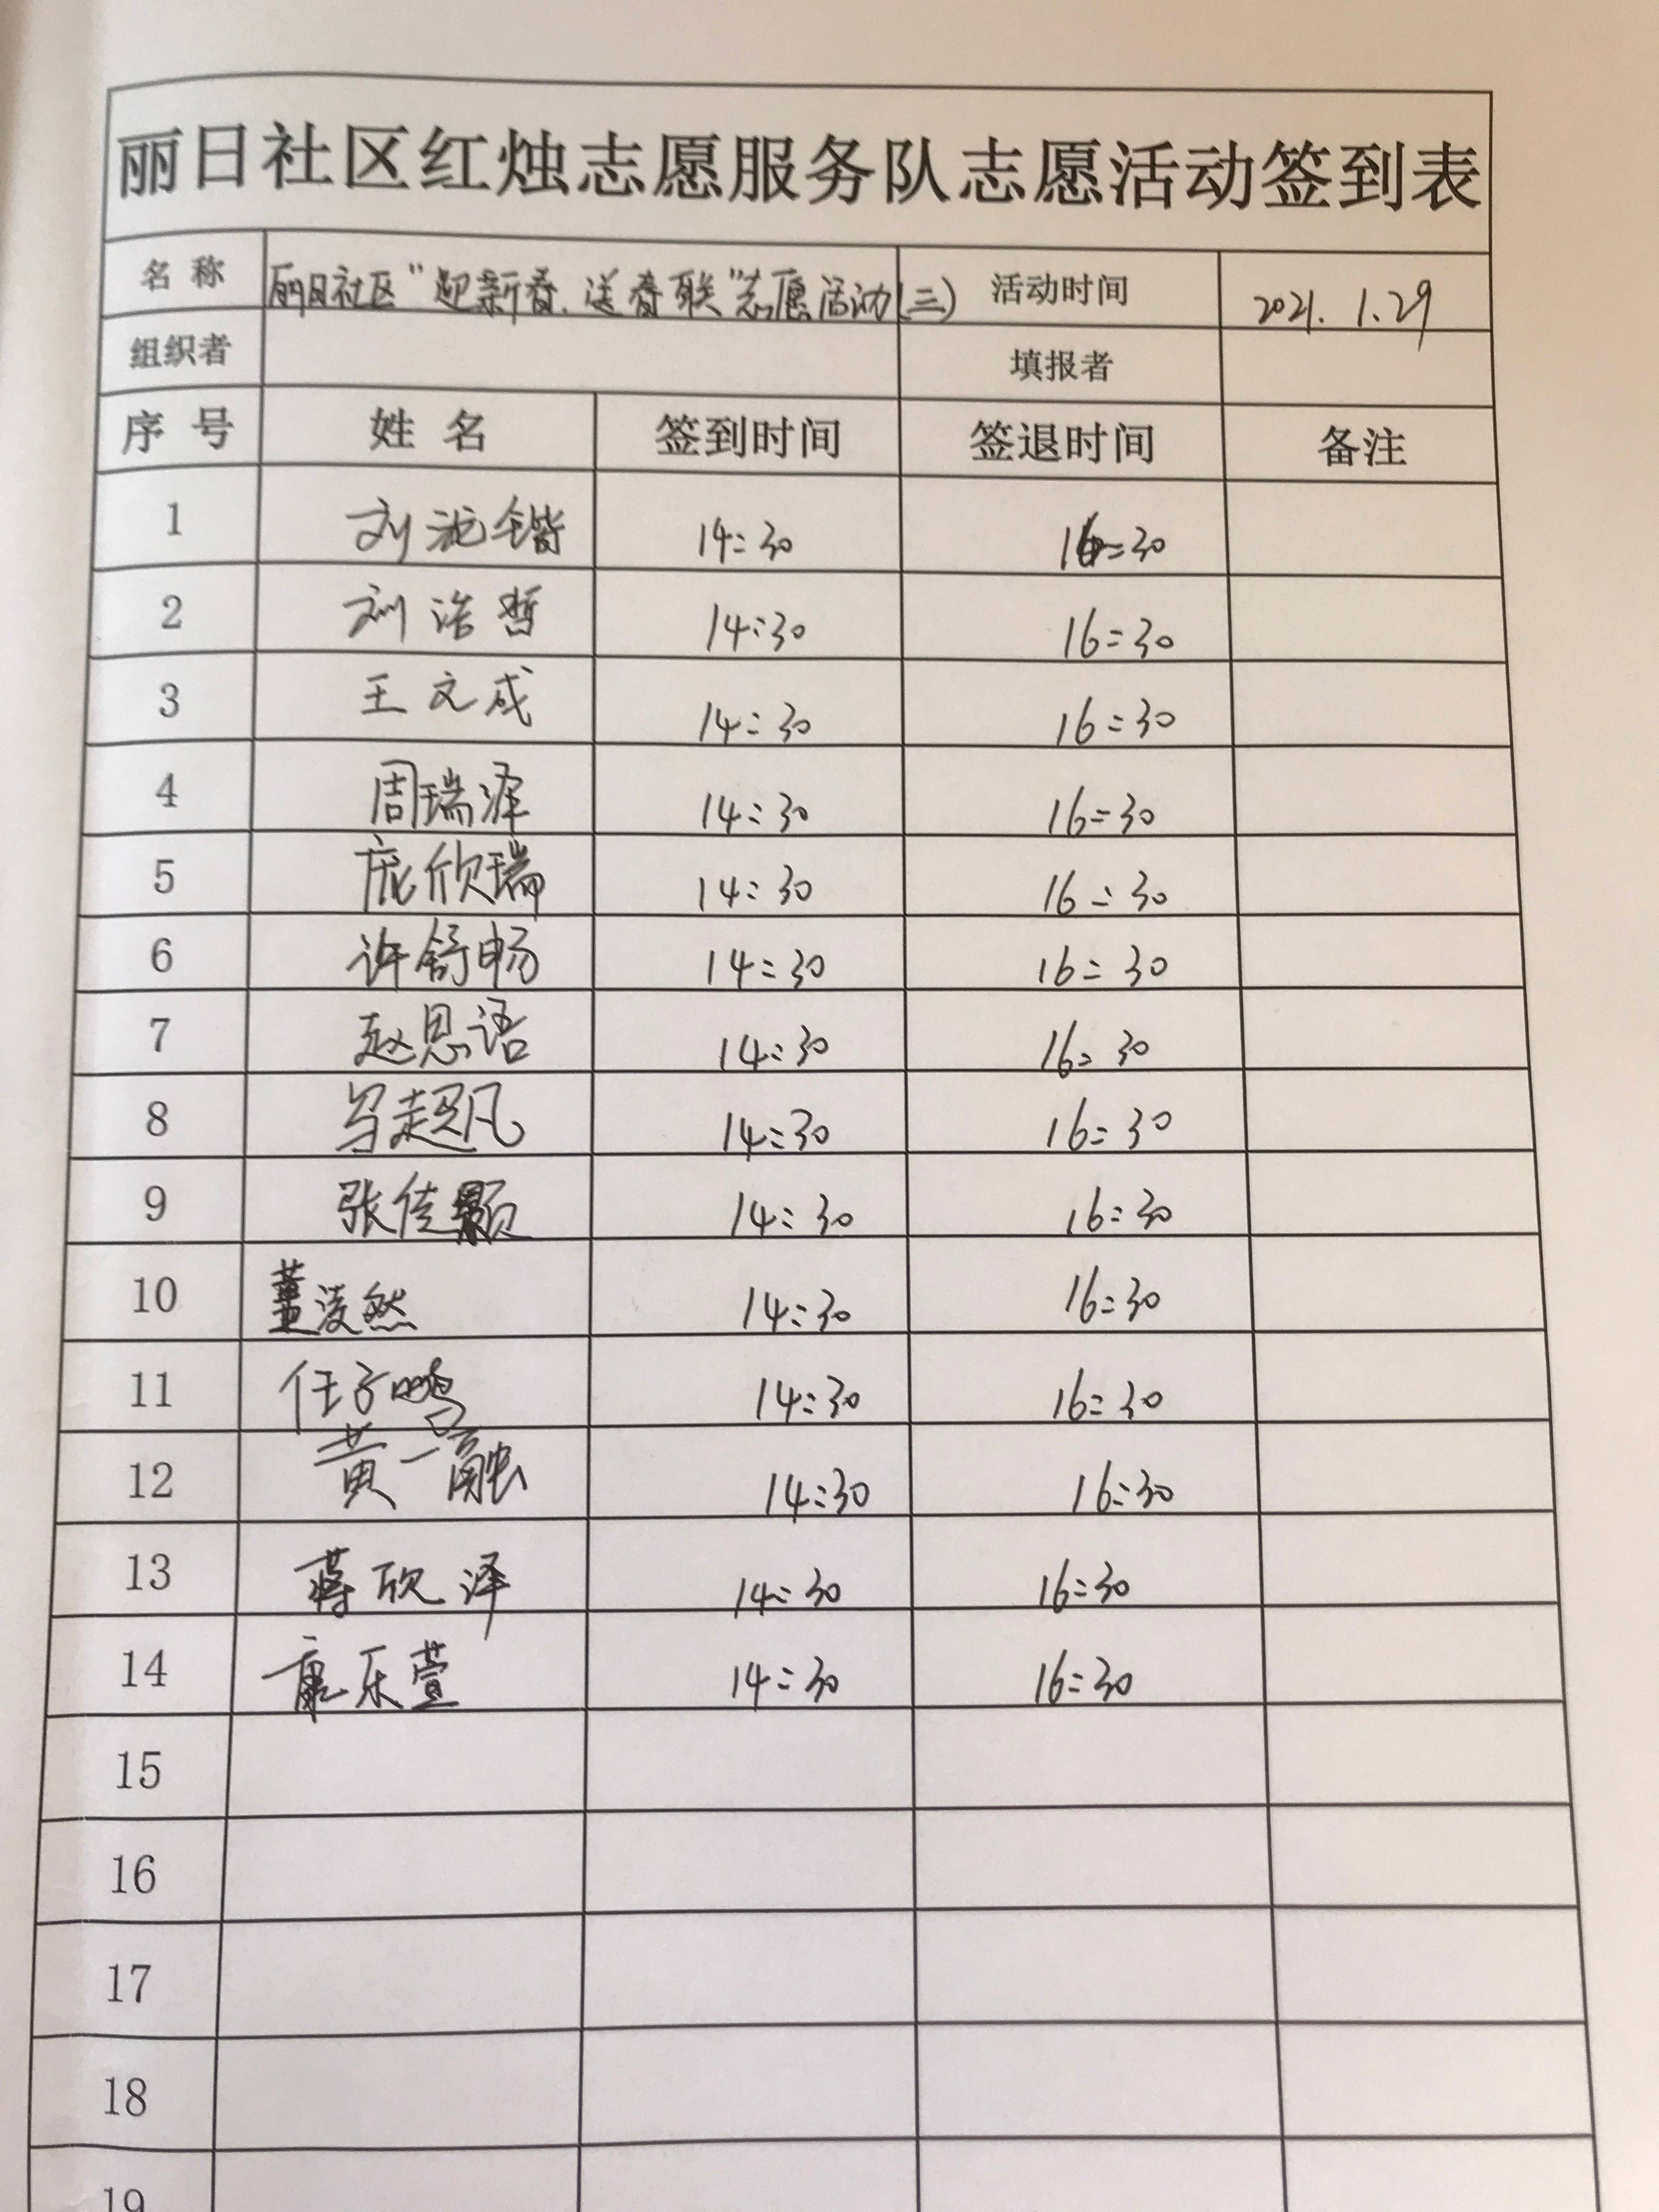 丽日社区红烛志愿服务队志愿活动签到表
名 称 丽日社区"迎新春.送春联"志愿活动(三) 活动时间 2021.1.29
组织者 填报者
序 号 姓 名 签到时间 签退时间 备注
1 刘 14:30 16:30
2 刘浩哲 14:30 16:30
3 王文成 14:30 16:30
4 周瑞泽 14:30 16:30
5 庞欣瑞 14:30 16:30
6 许舒畅 14:30 16:30
7 赵思语 14:30 16:30
8 马超凡 14:30 16:30
9 张佳颢 14:30 16:30
10 董凌然 14:30 16:30
11 任子鸣 14:30 16:30
12 黄一融 14:30 16:30
13 蒋欣泽 14:30 16:30
14 康乐萱 14:30 16:30
15
16
17
18
19